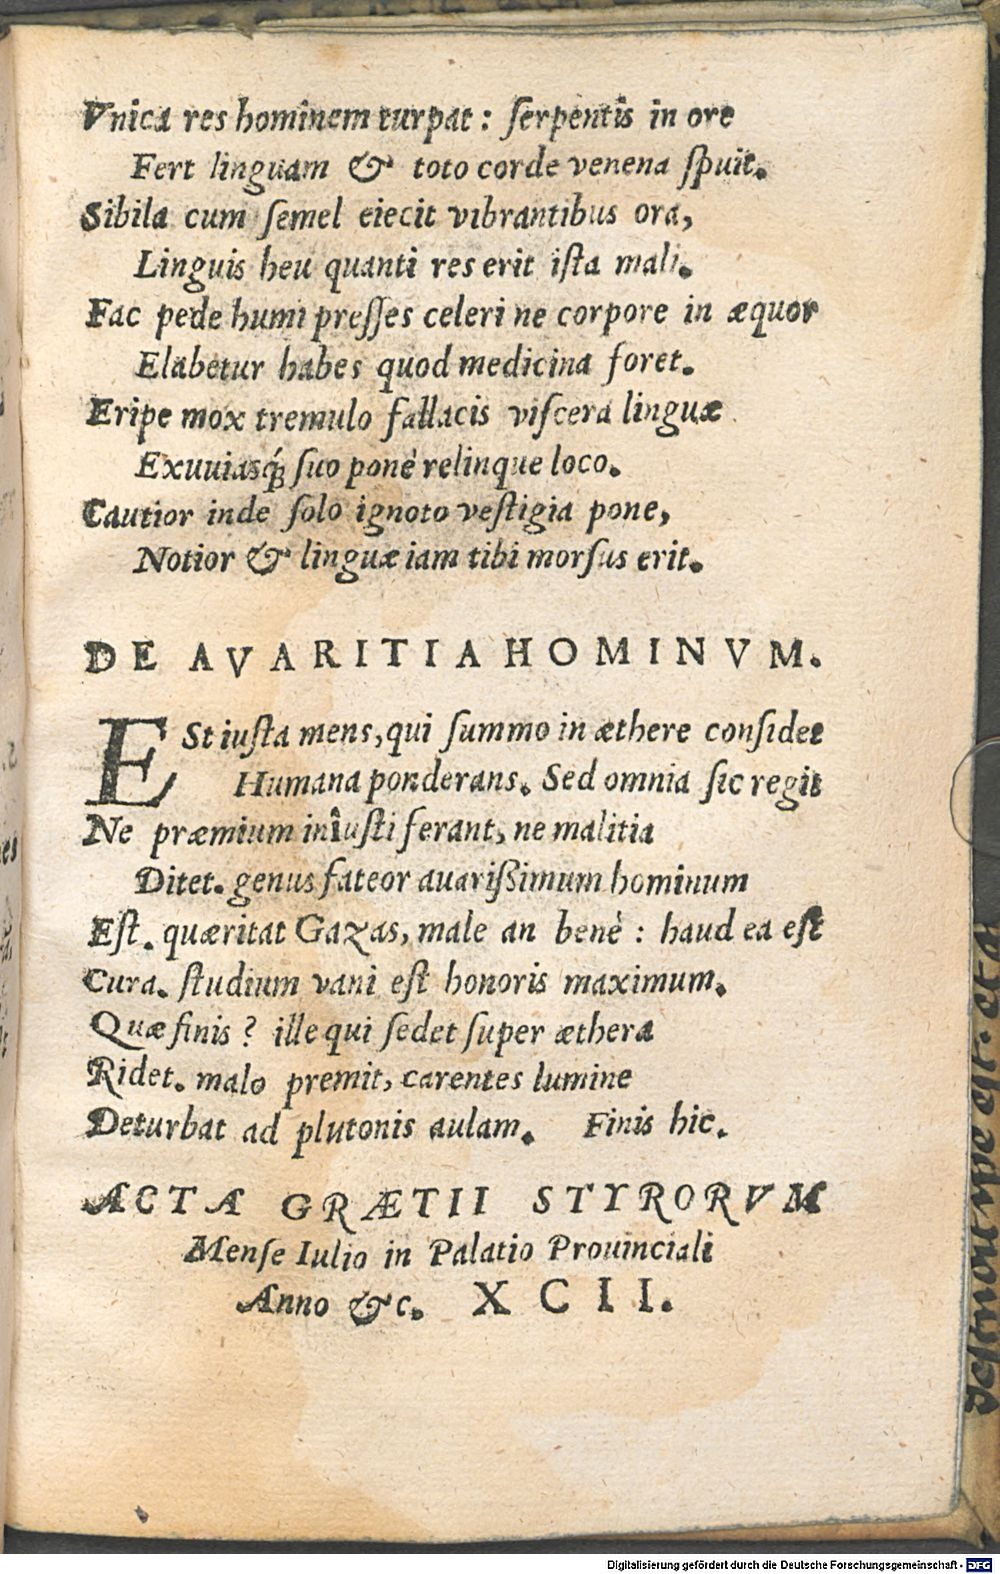 Vnica res hominem turpat : ſerpentis in ore
Fert linguam & toto corde venena ſpuit.
Sibila cum ſemel eiecit vibrantibus ora,
Linguis heu quanti res erit iſta mali.
Fac pede humi preſſes celeri ne corpore in æquor
Elabetur habes quod medicina foret.
Eripe mox tremulo fallacis viſcera linguæ
Exuuiasq́ꝫ ſuo ponè relinque loco.
Cautior inde ſolo ignoto veſtigia pone,
Notior & linguæ iam tibi morſus erit.
DE AVARITIA HOMINVM.
ESt iuſta mens, qui ſummo in æthere conſidet
Humana ponderans. Sed omnia ſic regit
Ne præmium iniuſti ferant, ne malitia
Ditet. genus fateor auariſſimum hominum
Eſt. quæritat Gazas, male an benè : haud ea eſt
Cura. ſtudium vani eſt honoris maximum.
Quæ finis ? ille qui ſedet ſuper æthera
Ridet. malo premit, carentes lumine
Deturbat ad plutonis aulam. Finis hic.
ACTA GRÆTII STYRORVM
Menſe Iulio in Palatio Prouinciali
Anno &c. XCII.
Digitalisierung gefördert durch die Deutsche Forschungsgemeinschaft - DFG